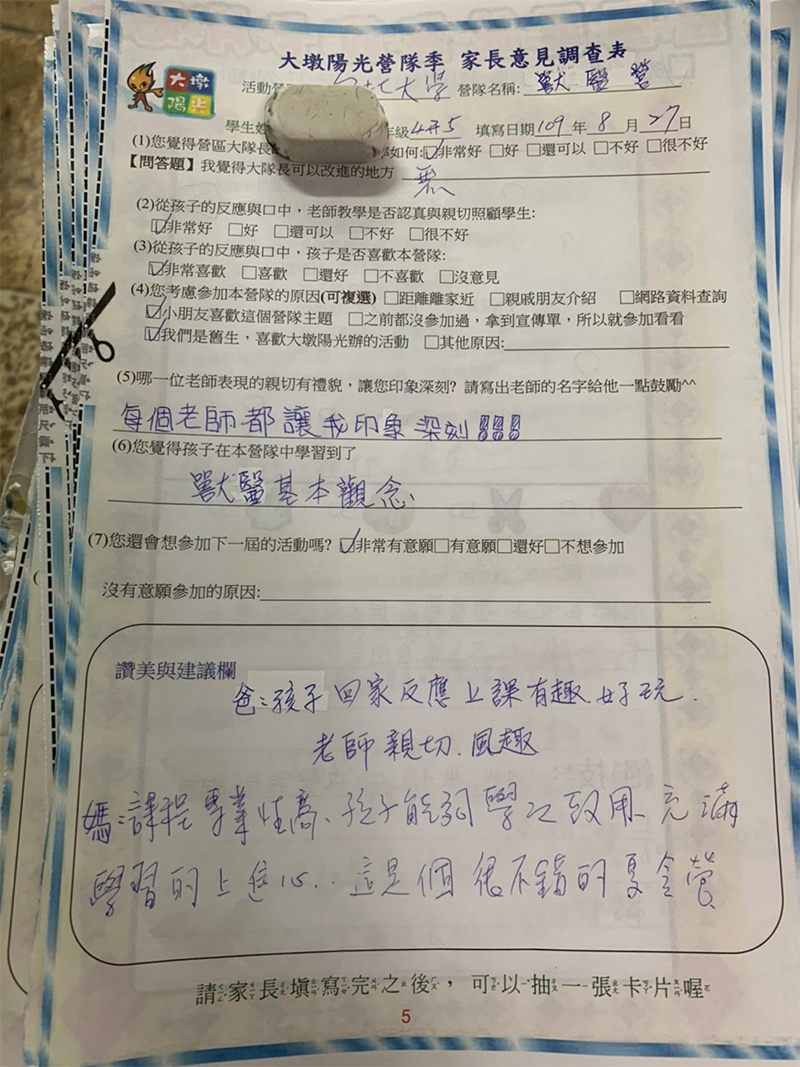 大墩陽光營隊季 家長意見調查表
大墩
陽光
活動營 大學 營隊名稱: 獸醫營
學生姓 年級4升5 填寫日期109年8月27日
(1)您覺得營區大隊長 如何:☑非常好 □好 □還可以 □不好 □很不好
【問答題】我覺得大隊長可以改進的地方
(2)從孩子的反應與口中，老師教學是否認真與親切照顧學生:
☑非常好 □好 □還可以 □不好 □很不好
(3)從孩子的反應與口中，孩子是否喜歡本營隊:
☑非常喜歡 □喜歡 □還好 □不喜歡 □沒意見
(4)您考慮參加本營隊的原因(可複選) □距離離家近 □親戚朋友介紹 □網路資料查詢
☑小朋友喜歡這個營隊主題 □之前都沒參加過，拿到宣傳單，所以就參加看看
☑我們是舊生，喜歡大墩陽光辦的活動 □其他原因:
(5)哪一位老師表現的親切有禮貌，讓您印象深刻? 請寫出老師的名字給他一點鼓勵^^
每個老師都讓我印象深刻!!!
(6)您覺得孩子在本營隊中學習到了
獸醫基本觀念、
(7)您還會想參加下一屆的活動嗎? ☑非常有意願□有意願□還好□不想參加
沒有意願參加的原因:
讚美與建議欄
爸:孩子回家反應上課有趣、好玩.
老師親切、風趣
媽:課程專業性高、孩子能夠學以致用、充滿
學習的上進心..這是個很不錯的夏令營
請家長填寫完之後，可以抽一張卡片喔
5